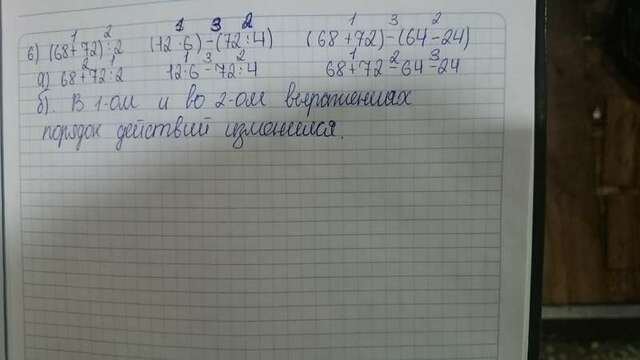 1 2 1 3 2 1 3 2
б) (68+72):2 (72·6)-(72:4) (68+72)-(64-24)
2 1 1 3 2 1 2 3
а) 68+72:2 72·6-72:4 68+72-64-24
б). В 1-ом и во 2-ом выражениях
порядок действий изменился.